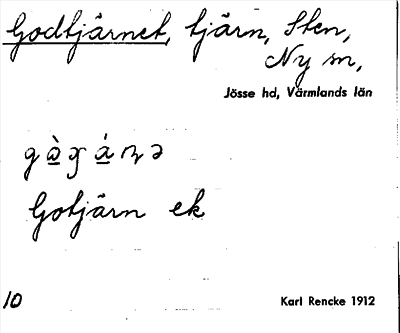 Godtjärnet, tjärn, Sten,
Ny sn,
Jösse hd, Värmlands län
Gotjärn ek
10
Karl Rencke 1912